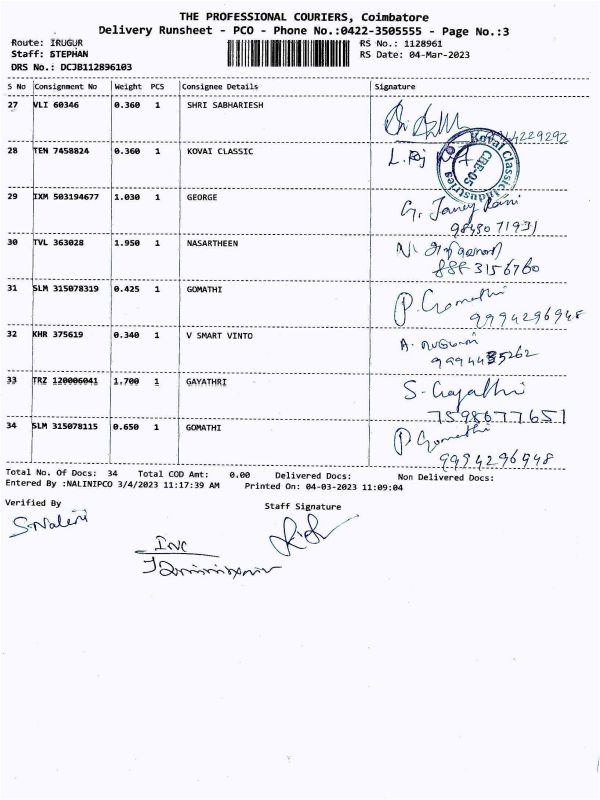 THE PROFESSIONAL COURIERS, Coimbatore
Delivery Runsheet - PCO - Phone No.:0422-3505555 - Page No.:3
Route: IRUGUR RS No.: 1128961
Staff: STEPHAN RS Date: 04-Mar-2023
DRS No.: DCJB112896103
S No Consignment No Weight PCS Consignee Details Signature
27 VLI 60346 0.360 1 SHRI SABHARIESH
28 TEN 7458824 0.360 1 KOVAI CLASSIC L. Raj
Koval Classic Industries
CBE-05
29 IXM 503194677 1.030 1 GEORGE G. Janey Rani
9843071931
30 TVL 363028 1.950 1 NASARTHEEN
31 SLM 315078319 0.425 1 GOMATHI P. Gomathi
9994296948
32 KHR 375619 0.340 1 V SMART VINTO A.
33 TRZ 120006041 1.700 1 GAYATHRI S. Gayathri
7598677651
34 SLM 315078115 0.650 1 GOMATHI P. Gomathi
9994296948
Total No. Of Docs: 34 Total COD Amt: 0.00 Delivered Docs: Non Delivered Docs:
Entered By :NALINIPCO 3/4/2023 11:17:39 AM Printed On: 04-03-2023 11:09:04
Verified By Staff Signature
S. Nalini
INC